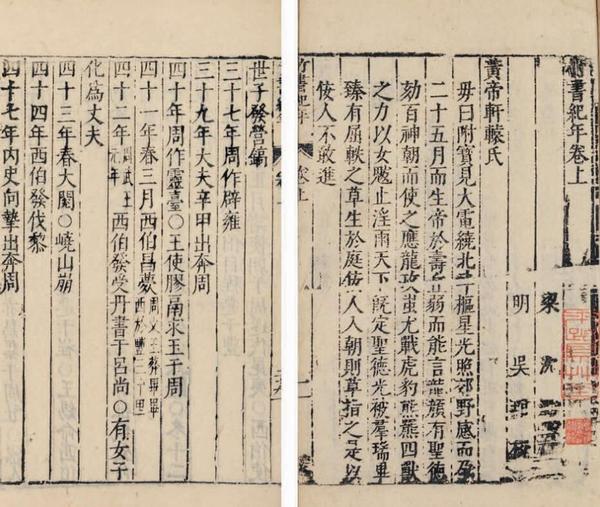 竹書紀年卷上
梁 沈
明 吳
黃帝軒轅氏
毋曰附寳見大電繞北斗樞星光照郊野感而孕
二十五月而生帝於壽丘弱而能言龍顏有聖德
劾百神朝而使之應龍攻蚩尤戰虎豹熊羆四獸
之力以女魃止淫雨天下既定聖德光被羣瑞畢
臻有屈軼之草生於庭佞人入朝則草指之是以
佞人不敢進
竹書紀年 卷上
世子發營鎬
三十七年周作辟雍
三十九年大夫辛甲出奔周
四十年周作靈臺○王使膠鬲求玉于周
四十一年春三月西伯昌薨周文王葬畢畢西於豐三十里
四十二年周武王元年西伯發受丹書于呂尚○有女子
化爲丈夫
四十三年春大閱○嶢山崩
四十四年西伯發伐黎
四十七年內史向摯出奔周